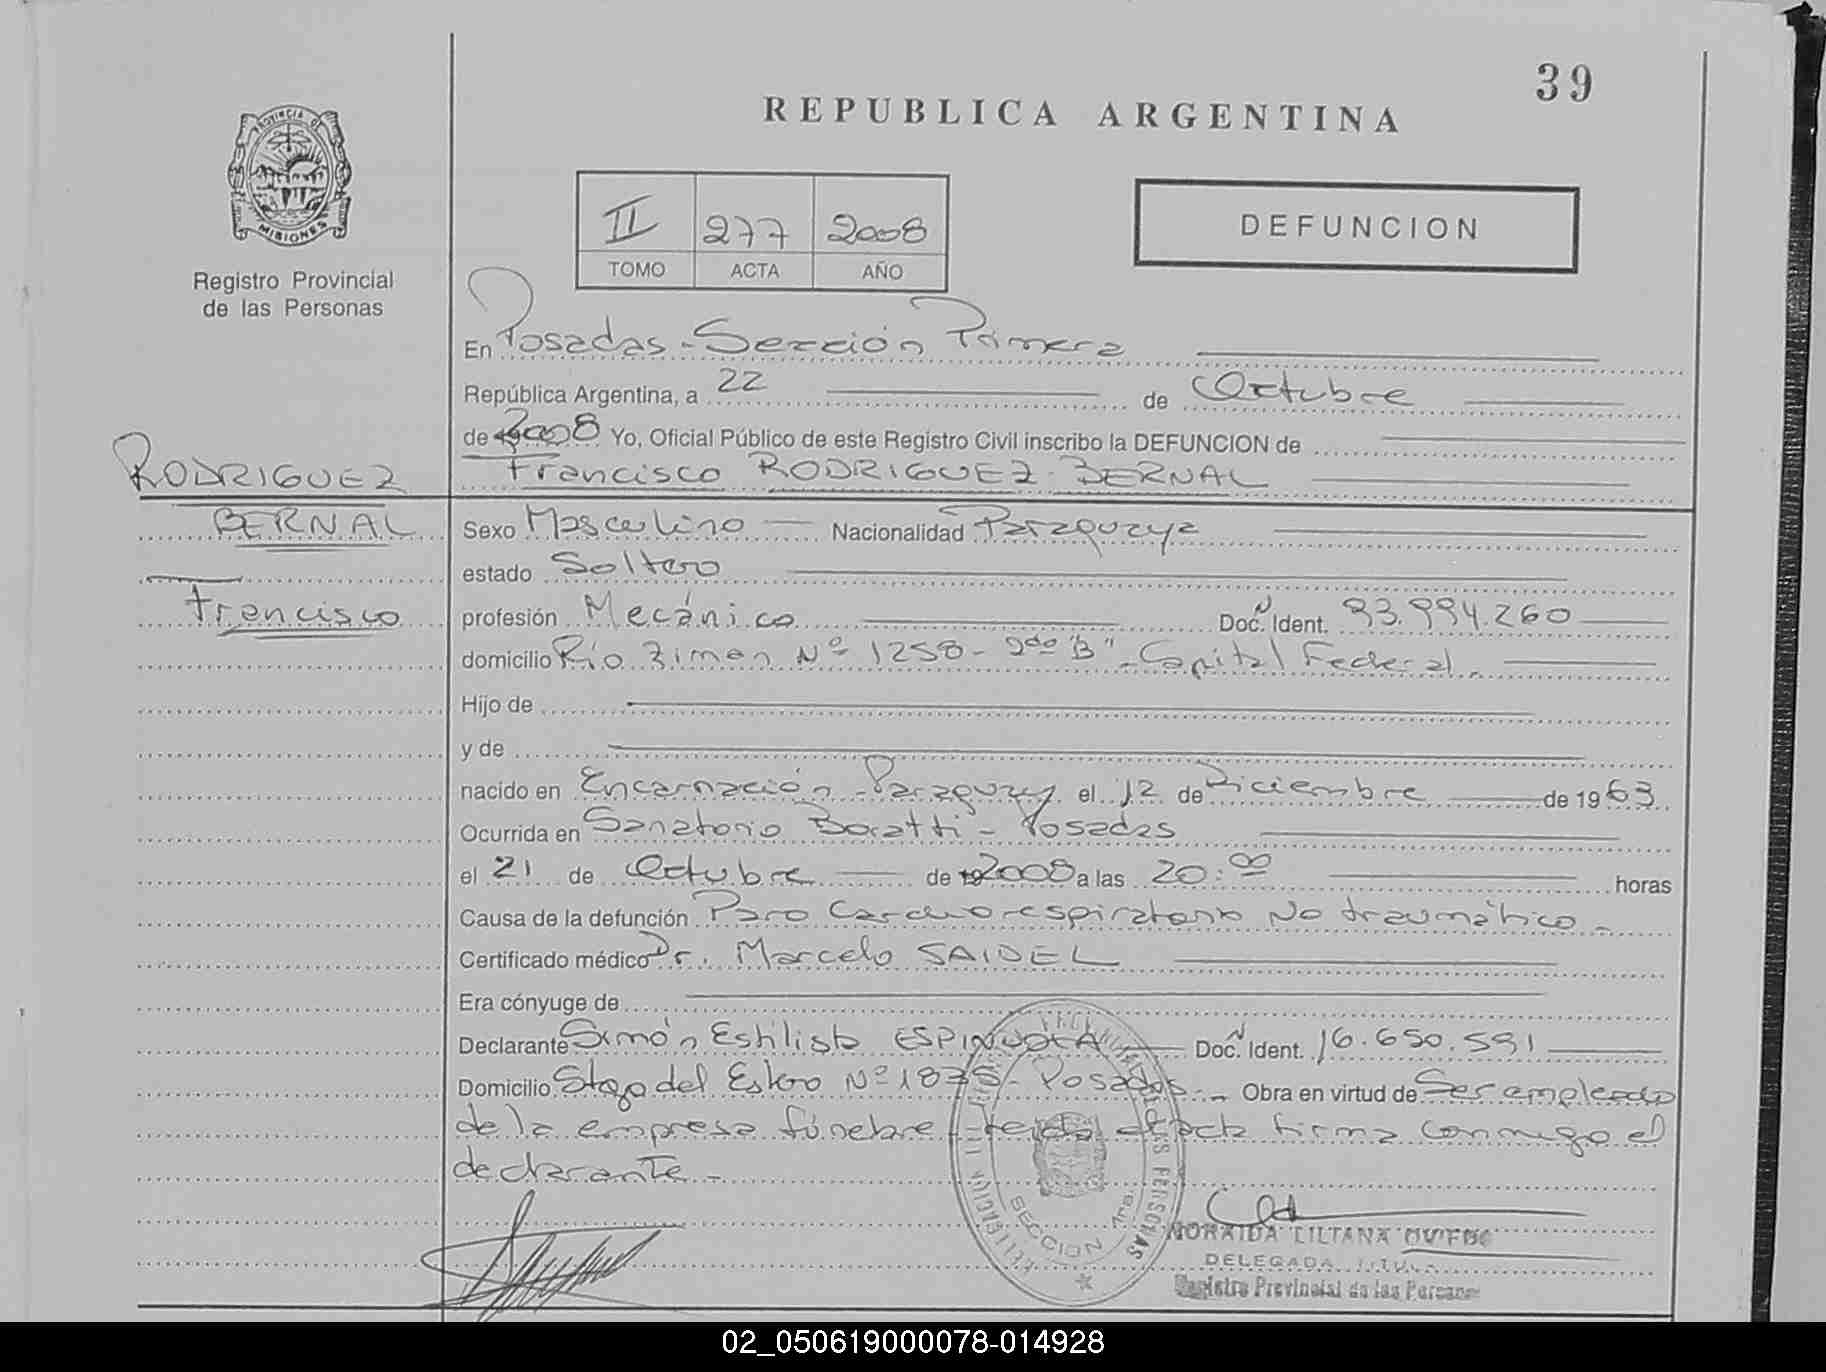 39
REPUBLICA ARGENTINA
PROVINCIA DE
MISIONES
Registro Provincial
de las Personas
II 277 2008
TOMO ACTA AÑO
DEFUNCION
En Posadas - Sección Primera
República Argentina, a 22 de Octubre
de 2008 Yo, Oficial Público de este Registro Civil inscribo la DEFUNCION de
RODRIGUEZ
Francisco RODRIGUEZ BERNAL
BERNAL
Sexo Masculino Nacionalidad Paraguaya
estado Soltero
Francisco
profesión Mecánico Doc. Ident. 93.994.260
domicilio Río Nº 1258 - 2do "B" - Capital Federal.
Hijo de
y de
nacido en Encarnación - Paraguay el 12 de Diciembre de 1963
Ocurrida en Sanatorio Boratti - Posadas
el 21 de Octubre de 2008 a las 20:00 horas
Causa de la defunción Paro Cardiorespiratorio No traumático -
Certificado médico Dr. Marcelo SAIDEL
Era cónyuge de
Declarante Simón Doc. Ident. 16.650.591
Domicilio Stgo del Estero Nº 1835 - Posadas - Obra en virtud de Ser empleado
de la empresa fúnebre - leída el acta firma conmigo el
declarante -
SECCION 1ra.
DE LAS PERSONAS
NORAIDA LILIANA OVIEDO
DELEGADA
Registro Provincial de las Personas
02_050619000078-014928